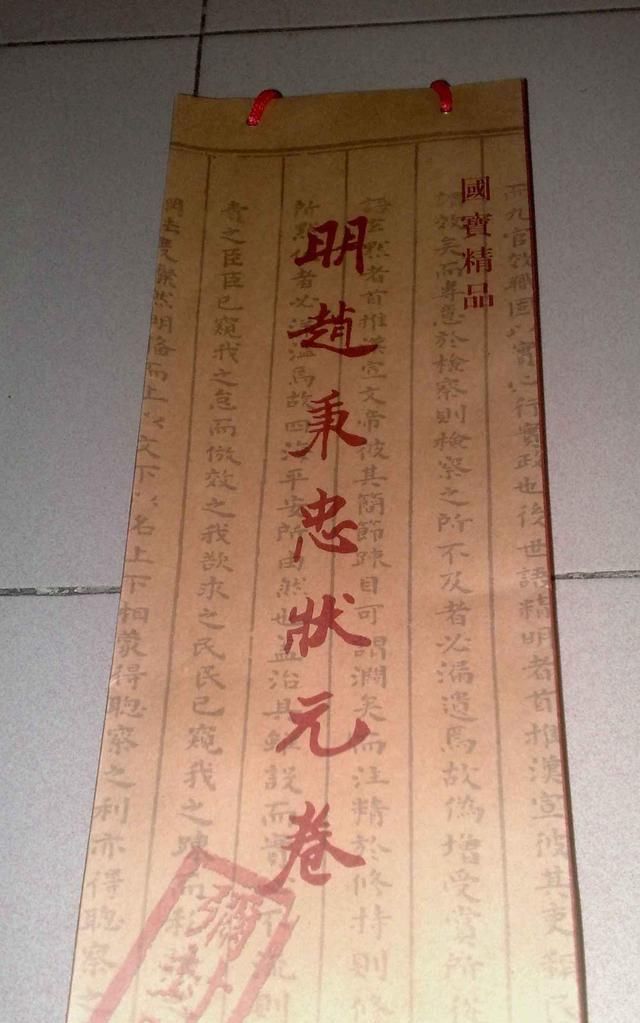 國寶精品
明趙秉忠狀元卷
而九官效職固以實心行實政也後世語精明者首推漢宣彼其吏稱民
效矣而專意於檢察則檢察之所不及者必漏遺焉故偽增受賞所從
語玄默者首推漢宣文帝彼其簡節疎目可謂濶矣而注精於修持則修
所默者必溢焉故四海平安所由然也蓋治具雖設而實不流則
責之臣臣已窺我之怠而倣效之我欲求之民民已窺我之疎而私
燦然明備而上以文下以名上下相蒙得聰察之利亦得聰察之
彌封